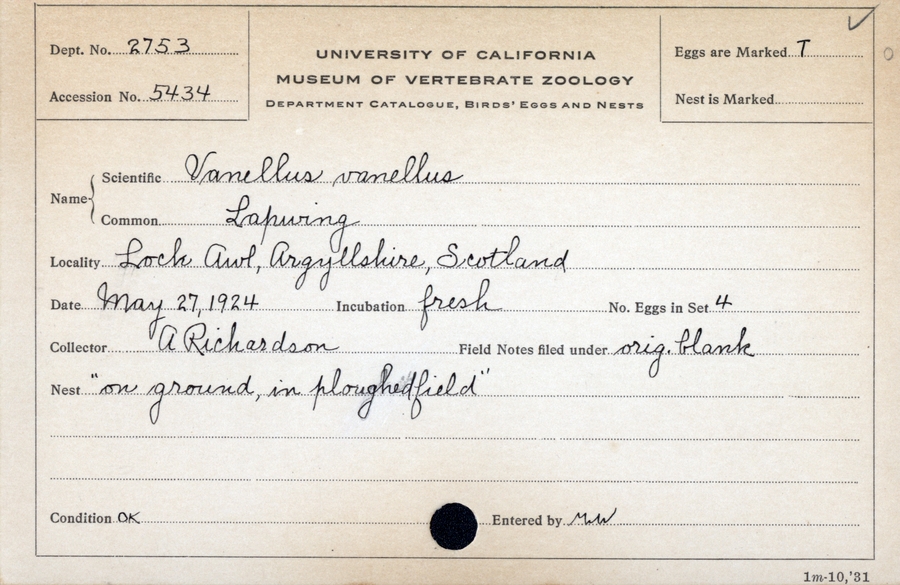 Dept. No. 2753
Accession No. 5434
UNIVERSITY OF CALIFORNIA
MUSEUM OF VERTEBRATE ZOOLOGY
DEPARTMENT CATALOGUE, BIRDS' EGGS AND NESTS
Eggs are Marked T
Nest is Marked
Name
Scientific Vanellus vanellus
Common Lapwing
Locality Loch Awl, Argyllshire, Scotland
Date May 27, 1924 Incubation fresh No. Eggs in Set 4
Collector A Richardson Field Notes filed under orig. blank
Nest "on ground, in ploughed field"
Condition OK Entered by
1m-10,'31